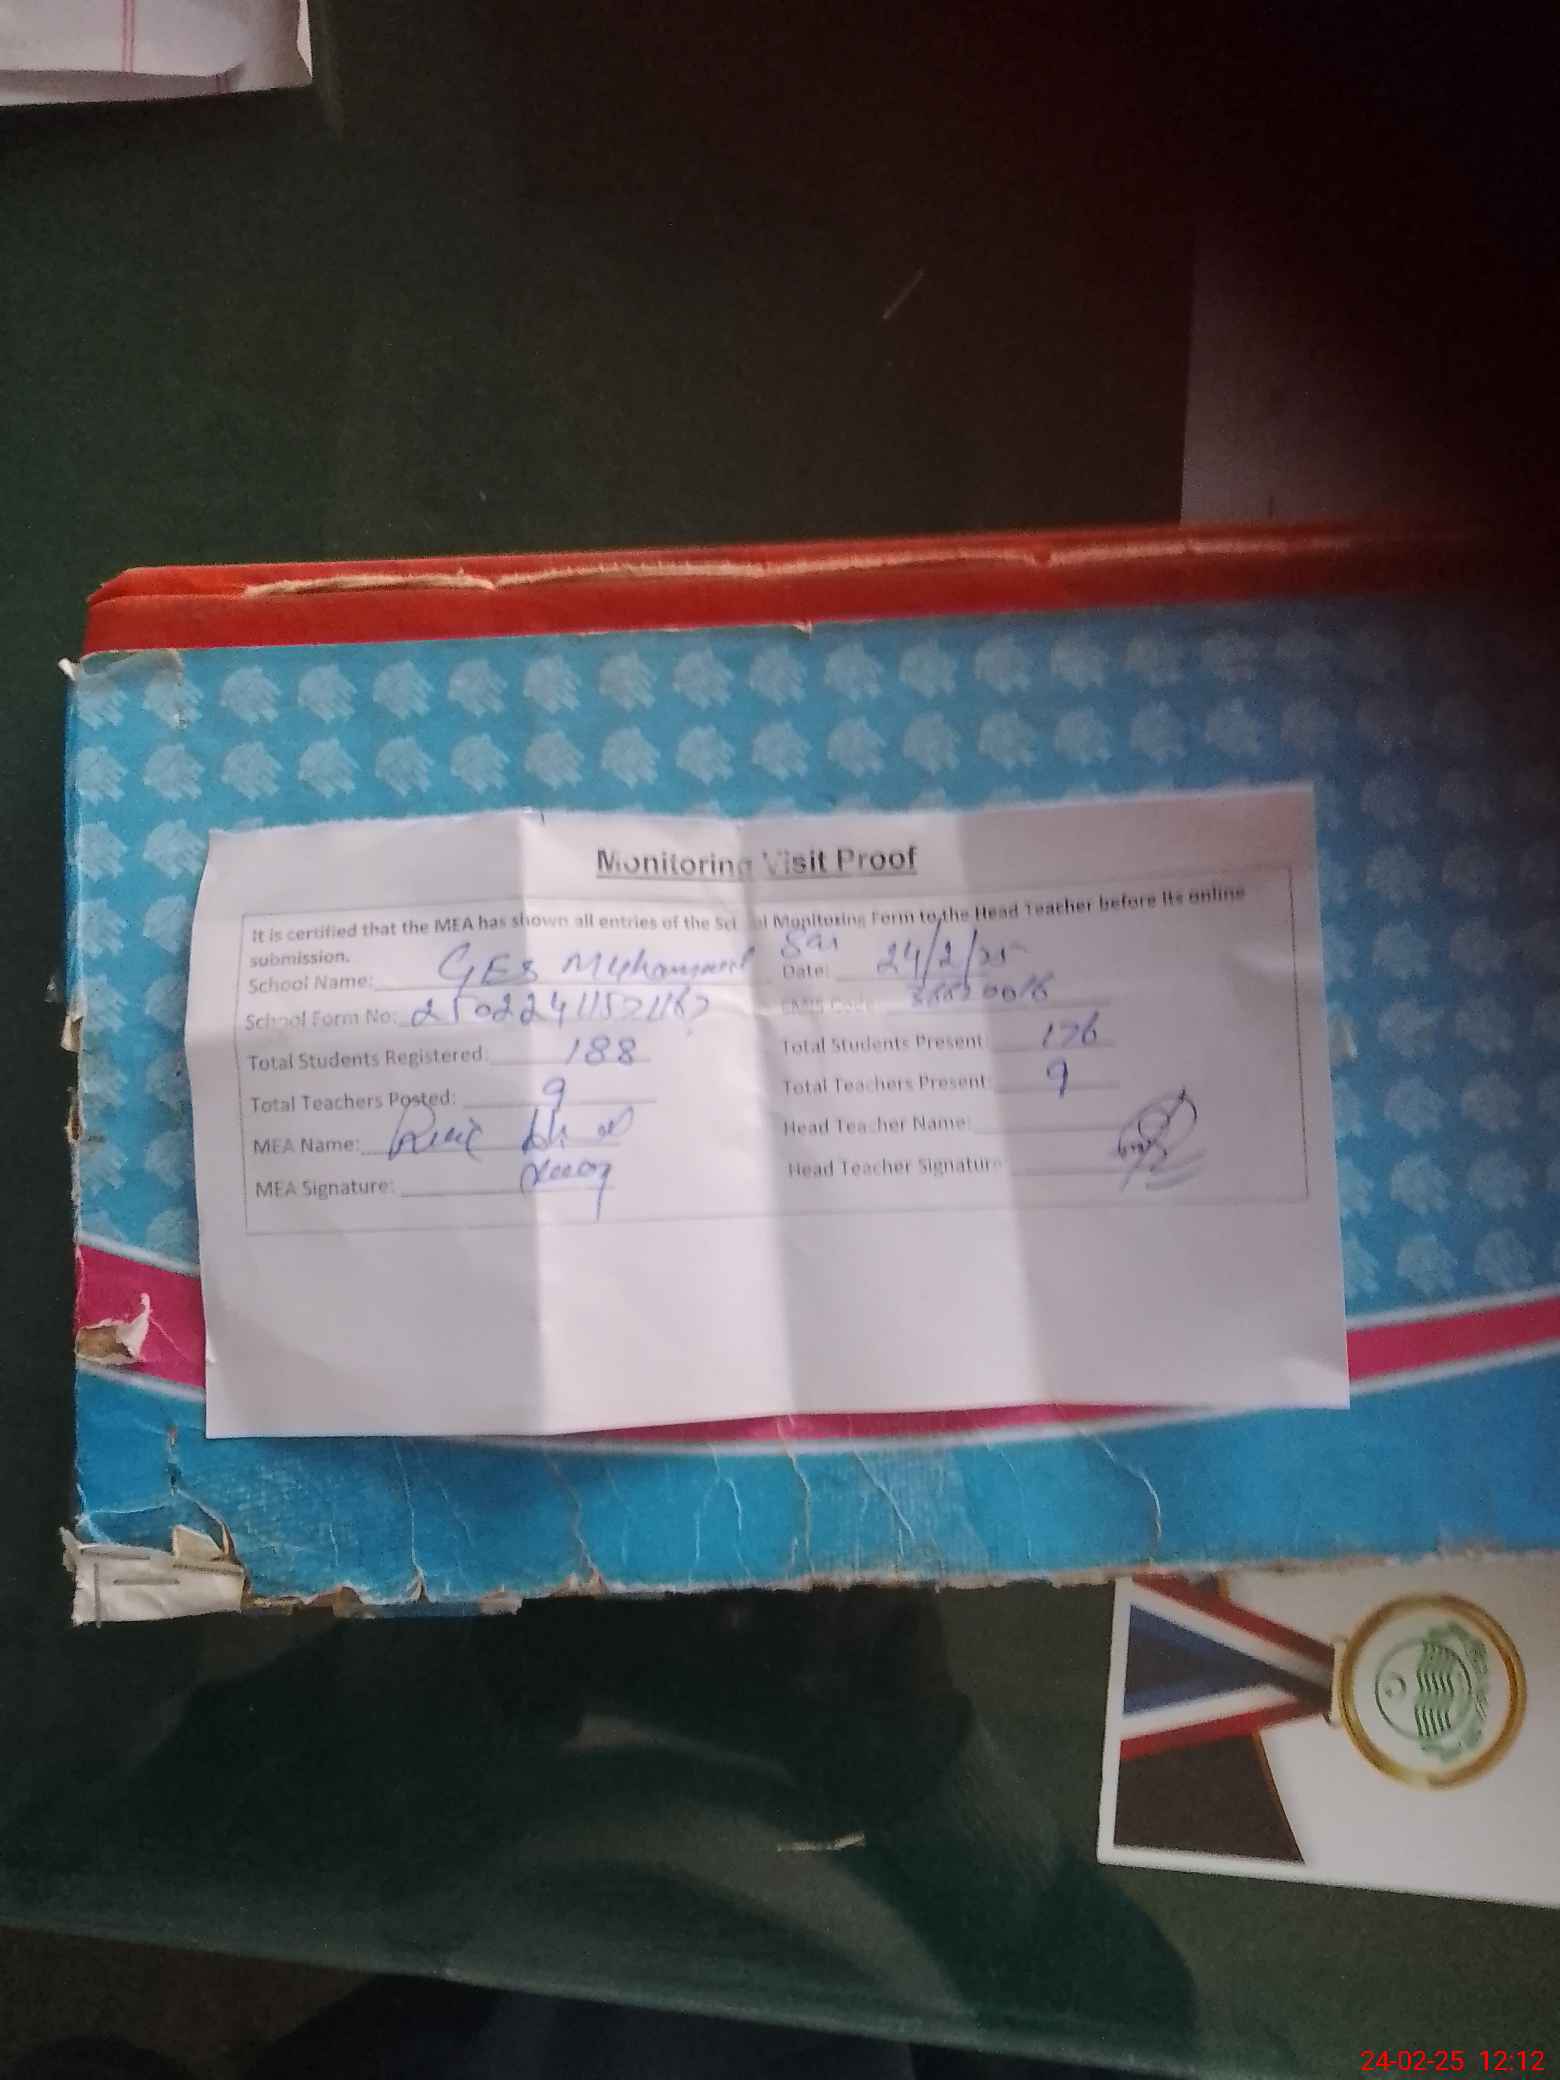 Monitoring Visit Proof
It is certified that the MEA has shown all entries of the School Monitoring Form to the Head Teacher before its online
submission.
School Name: GES Muhammad Sar Date: 24/2/25
School Form No:
Total Students Registered: 188 Total Students Present: 176
Total Teachers Posted: 9 Total Teachers Present: 9
MEA Name: Head Teacher Name:
MEA Signature: Head Teacher Signature:
24-02-25 12:12